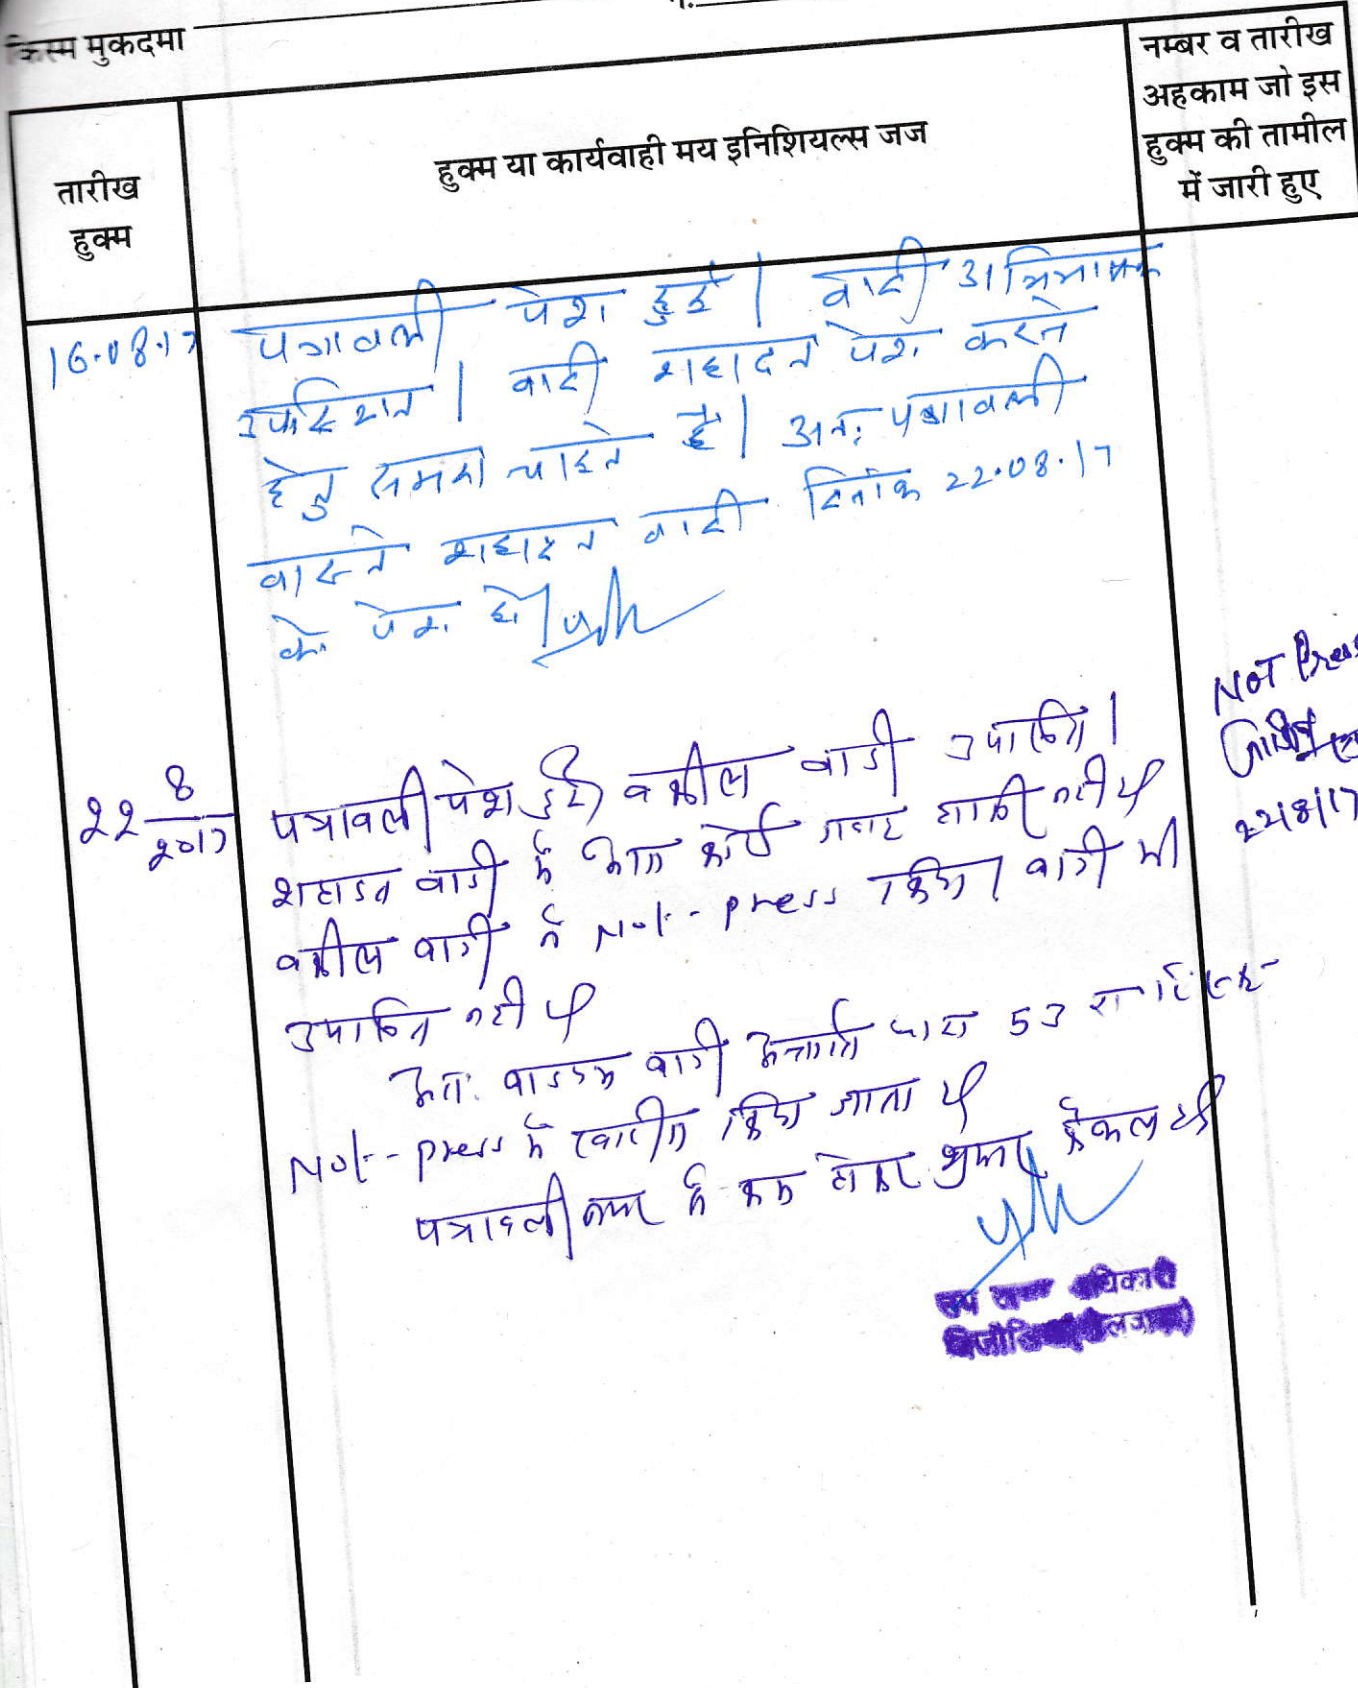 किस्म मुकदमा
तारीख
हुक्म
हुक्म या कार्यवाही मय इनिशियल्स जज
नम्बर व तारीख
अहकाम जो इस
हुक्म की तामील
में जारी हुए
16.08.17
पत्रावली पेश हुई। वादी अभिभाषक
उपस्थित। वादी शहादत पेश करने
हेतु समय चाहते है। अतः पत्रावली
वास्ते शहादत वादी दिनांक 22.08.17
को पेश हो।
22 8/2017
पत्रावली पेश हुई। वकील वादी उपस्थित।
शहादत वादी में आज कोई गवाह हाजिर नही है
वकील वादी ने Not-press किया। वादी भी
उपस्थित नही है
अतः वादपत्र वादी अन्तर्गत धारा 53
Not-press में खारीज किया जाता है
पत्रावली नम्बर से कम होकर शुमार फैसल हो।
NOT Press
22/8/17
उप खण्ड अधिकारी